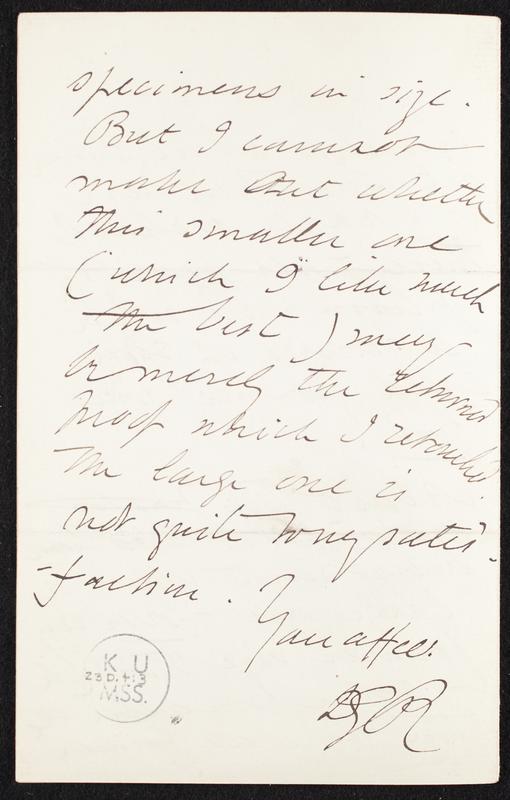 specimens in size.
But I cannot
make out whether
this smaller one
(which I like much
the best) may
be merely the returned
proof which I retouched.
The large one is
not quite to my satis-
-faction.
Your affec:
DGR
K U
23 D.+13
MSS.